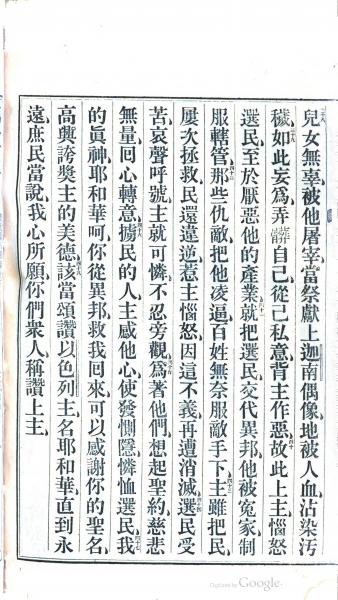 兒女無辜被他屠宰當祭獻上迦南偶像地被人血沾染汚
穢如此妄爲弄髒自己從己私意背主作惡故此上主惱怒
選民至於厭惡他的產業就把選民交代異邦他被寃家制
服轄管那些仇敵把他凌逼百姓無奈服敵手下主雖把民
屢次拯救民還違逆惹主惱怒因這不義再遭消滅選民受
苦哀聲呼號主就可憐不忍旁觀爲著他們想起聖約慈悲
無量回心轉意擄民的人主感他心使發惻隱憐恤選民我
的眞神耶和華呵你從異邦救我回來可以感謝你的聖名
高興誇獎主的美德該當頌讚以色列主名耶和華直到永
遠庶民當說我心所願你們衆人稱讚上主
Digitized by Google